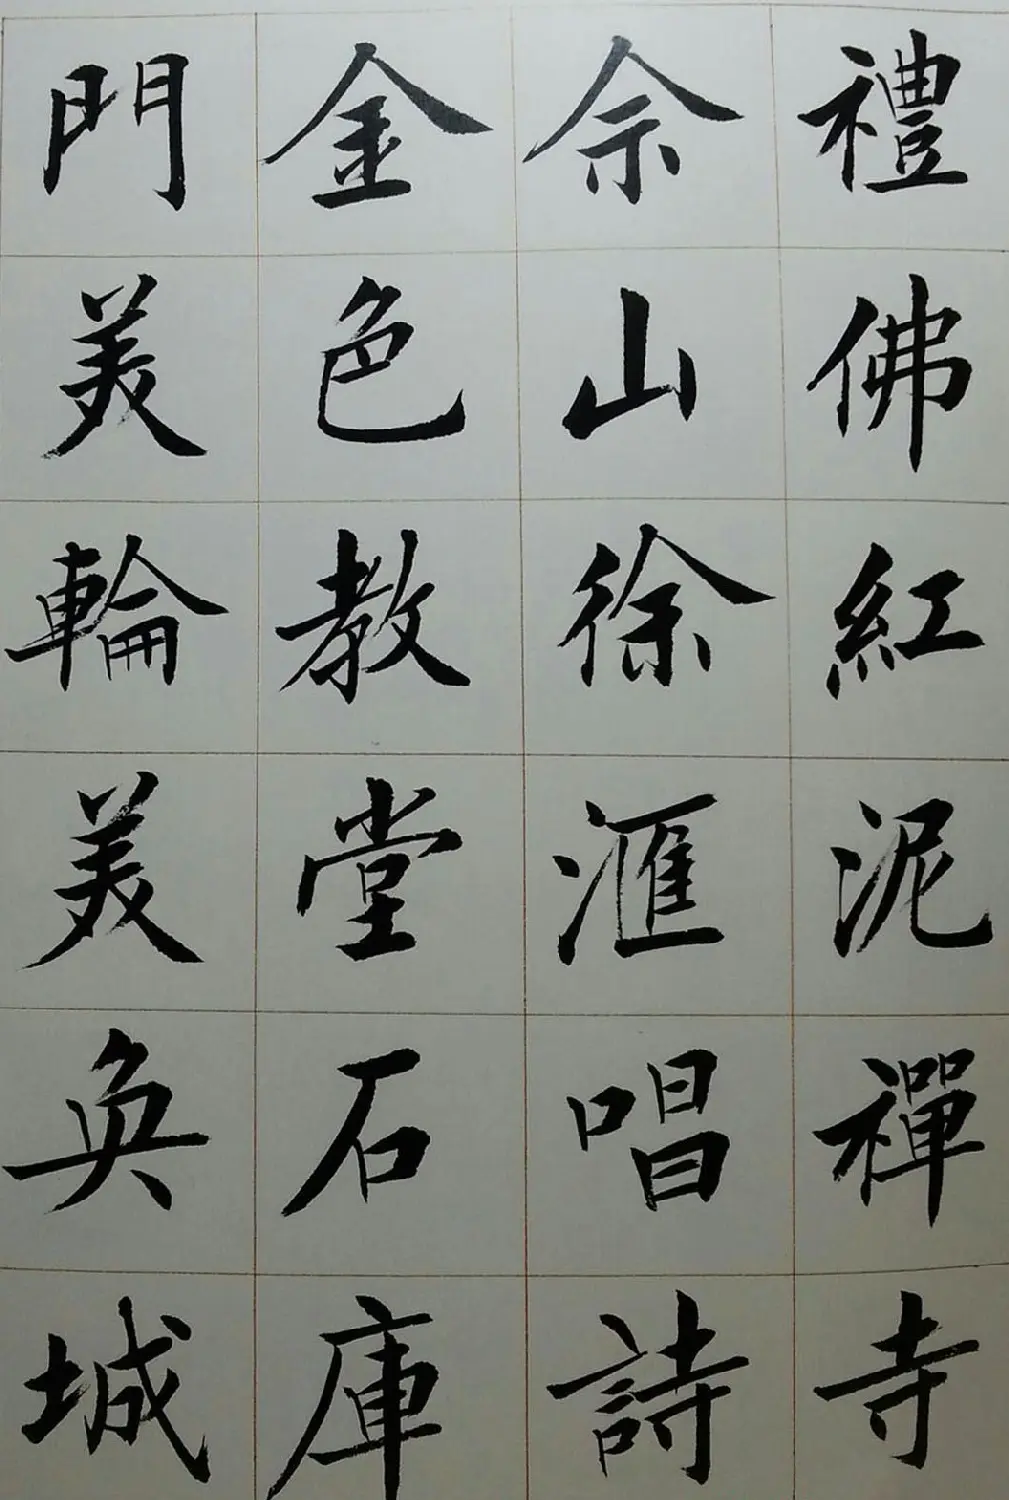 禮佛紅泥禪寺
佘山徐滙唱詩
金色教堂石庫
門美輪美奐城